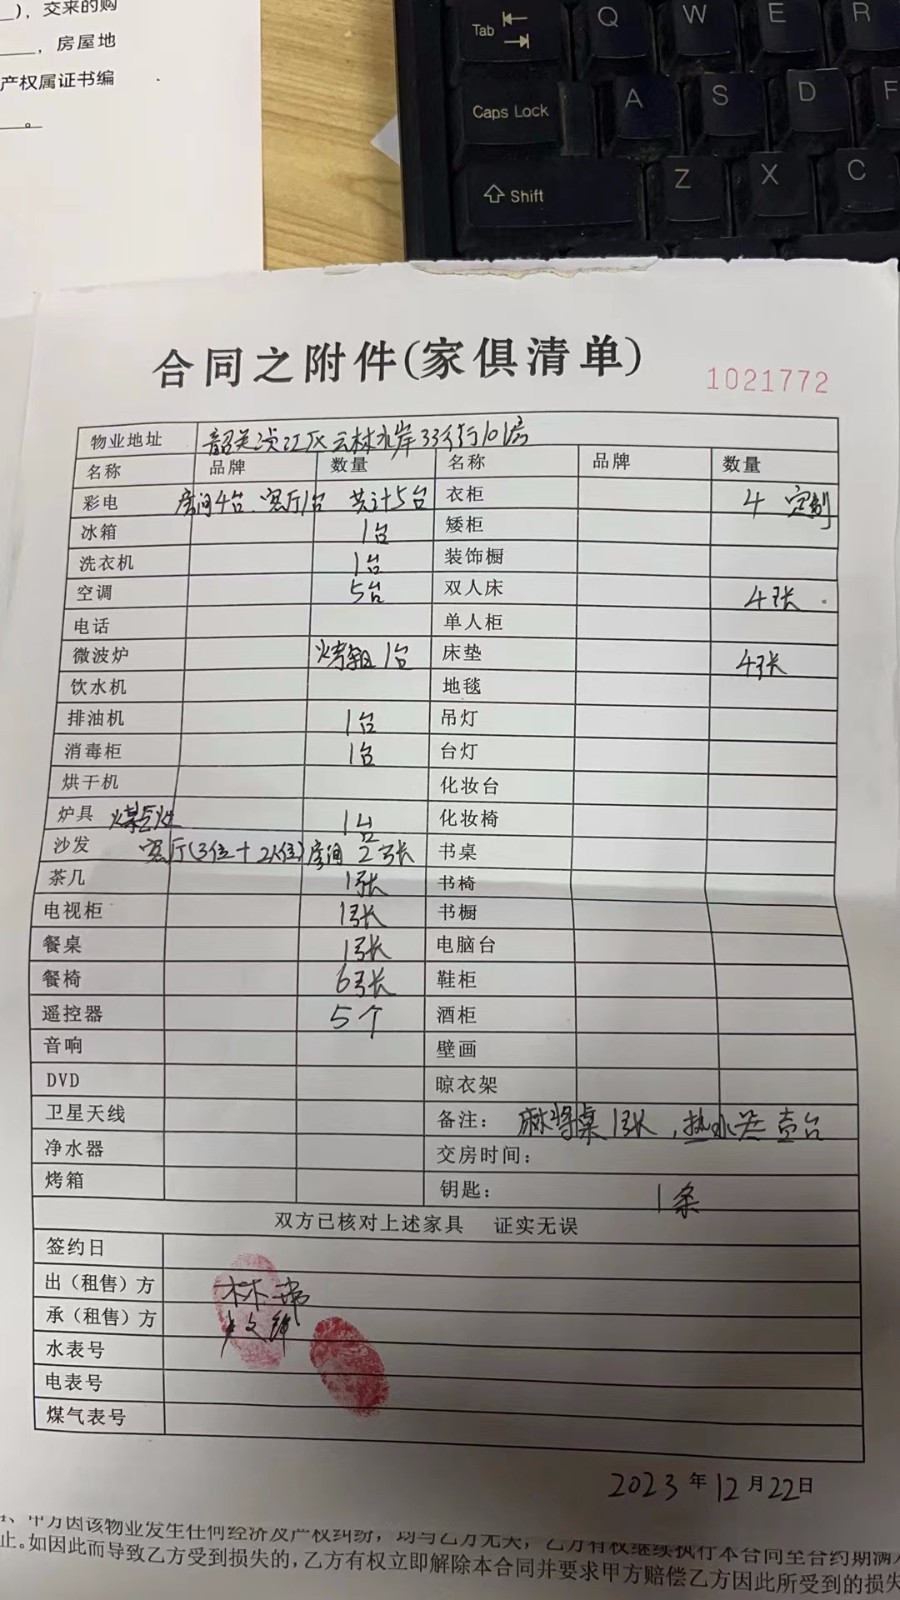 )，交来的购
，房屋地
产权属证书编
。
Tab Q W E R
Caps Lock A S D F
Shift Z X C
合同之附件(家俱清单)
1021772
物业地址 韶关浈江区云林水岸33街101房
名称 品牌 数量 名称 品牌 数量
彩电 房间4台、客厅1台 共计5台 衣柜 4 定制
冰箱 1台 矮柜
洗衣机 1台 装饰橱
空调 5台 双人床 4张
电话 单人柜
微波炉 烤箱 1台 床垫 4张
饮水机 地毯
排油机 1台 吊灯
消毒柜 1台 台灯
烘干机 化妆台
炉具 煤气灶 1台 化妆椅
沙发 客厅(3位+2人位)房间 2张 书桌
茶几 1张 书椅
电视柜 1张 书橱
餐桌 1张 电脑台
餐椅 6张 鞋柜
遥控器 5个 酒柜
音响 壁画
DVD 晾衣架
卫星天线 备注： 麻将桌1张，热水器壹台
净水器 交房时间：
烤箱 钥匙： 1条
双方已核对上述家具 证实无误
签约日
出（租售）方 林
承（租售）方
水表号
电表号
煤气表号
2023年12月22日
甲方因该物业发生任何经济及产权纠纷，均与乙方无关，乙方有权继续执行本合同至合约期满
止。如因此而导致乙方受到损失的，乙方有权立即解除本合同并要求甲方赔偿乙方因此所受到的损失